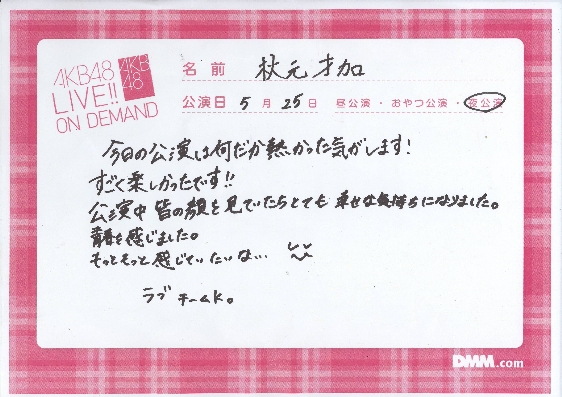 AKB48
LIVE!!
ON DEMAND
AKB
48
名前 秋元才加
公演日 5月25日 昼公演・おやつ公演・夜公演
今日の公演は何だか熱かった気がします!
すごく楽しかったです!!
公演中 皆の顔を見ていたらとても 幸せな気持ちになりました。
青春を感じました。
そっともっと感じていたいな...
ラブ チームK。
DMM.com